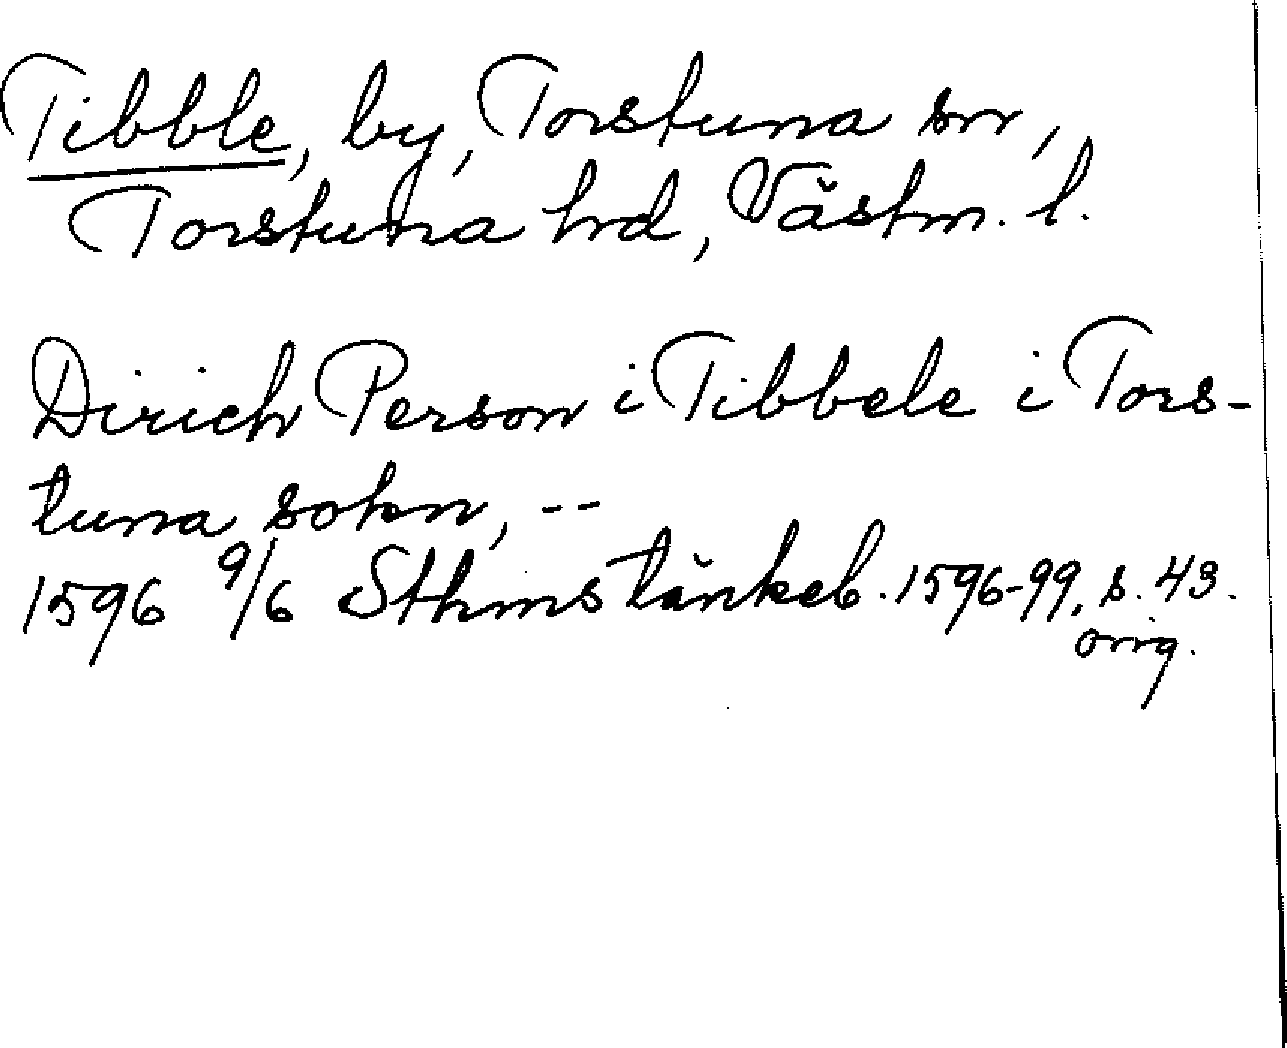 Tibble, by, Torstuna sn,
Torstuna hd, Västm. l.
Dirich Person i Tibbele i Tors-
tuna sokn, --
1596 9/6 Sthms tänkeb. 1596-99, s. 43.
orig.